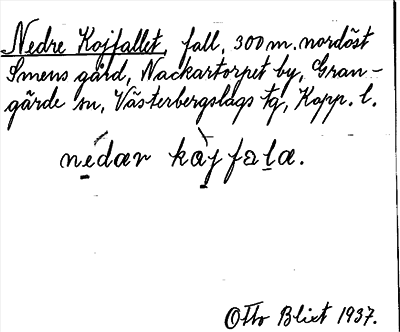 Nedre Kojfallet, fall, 300 m. nordöst
Smens gård, Nackartorpet by, Gran-
gärde sn, Västerbergslags tg, Kopp. l.
nédær kàj fala.
Otto Blixt 1937.